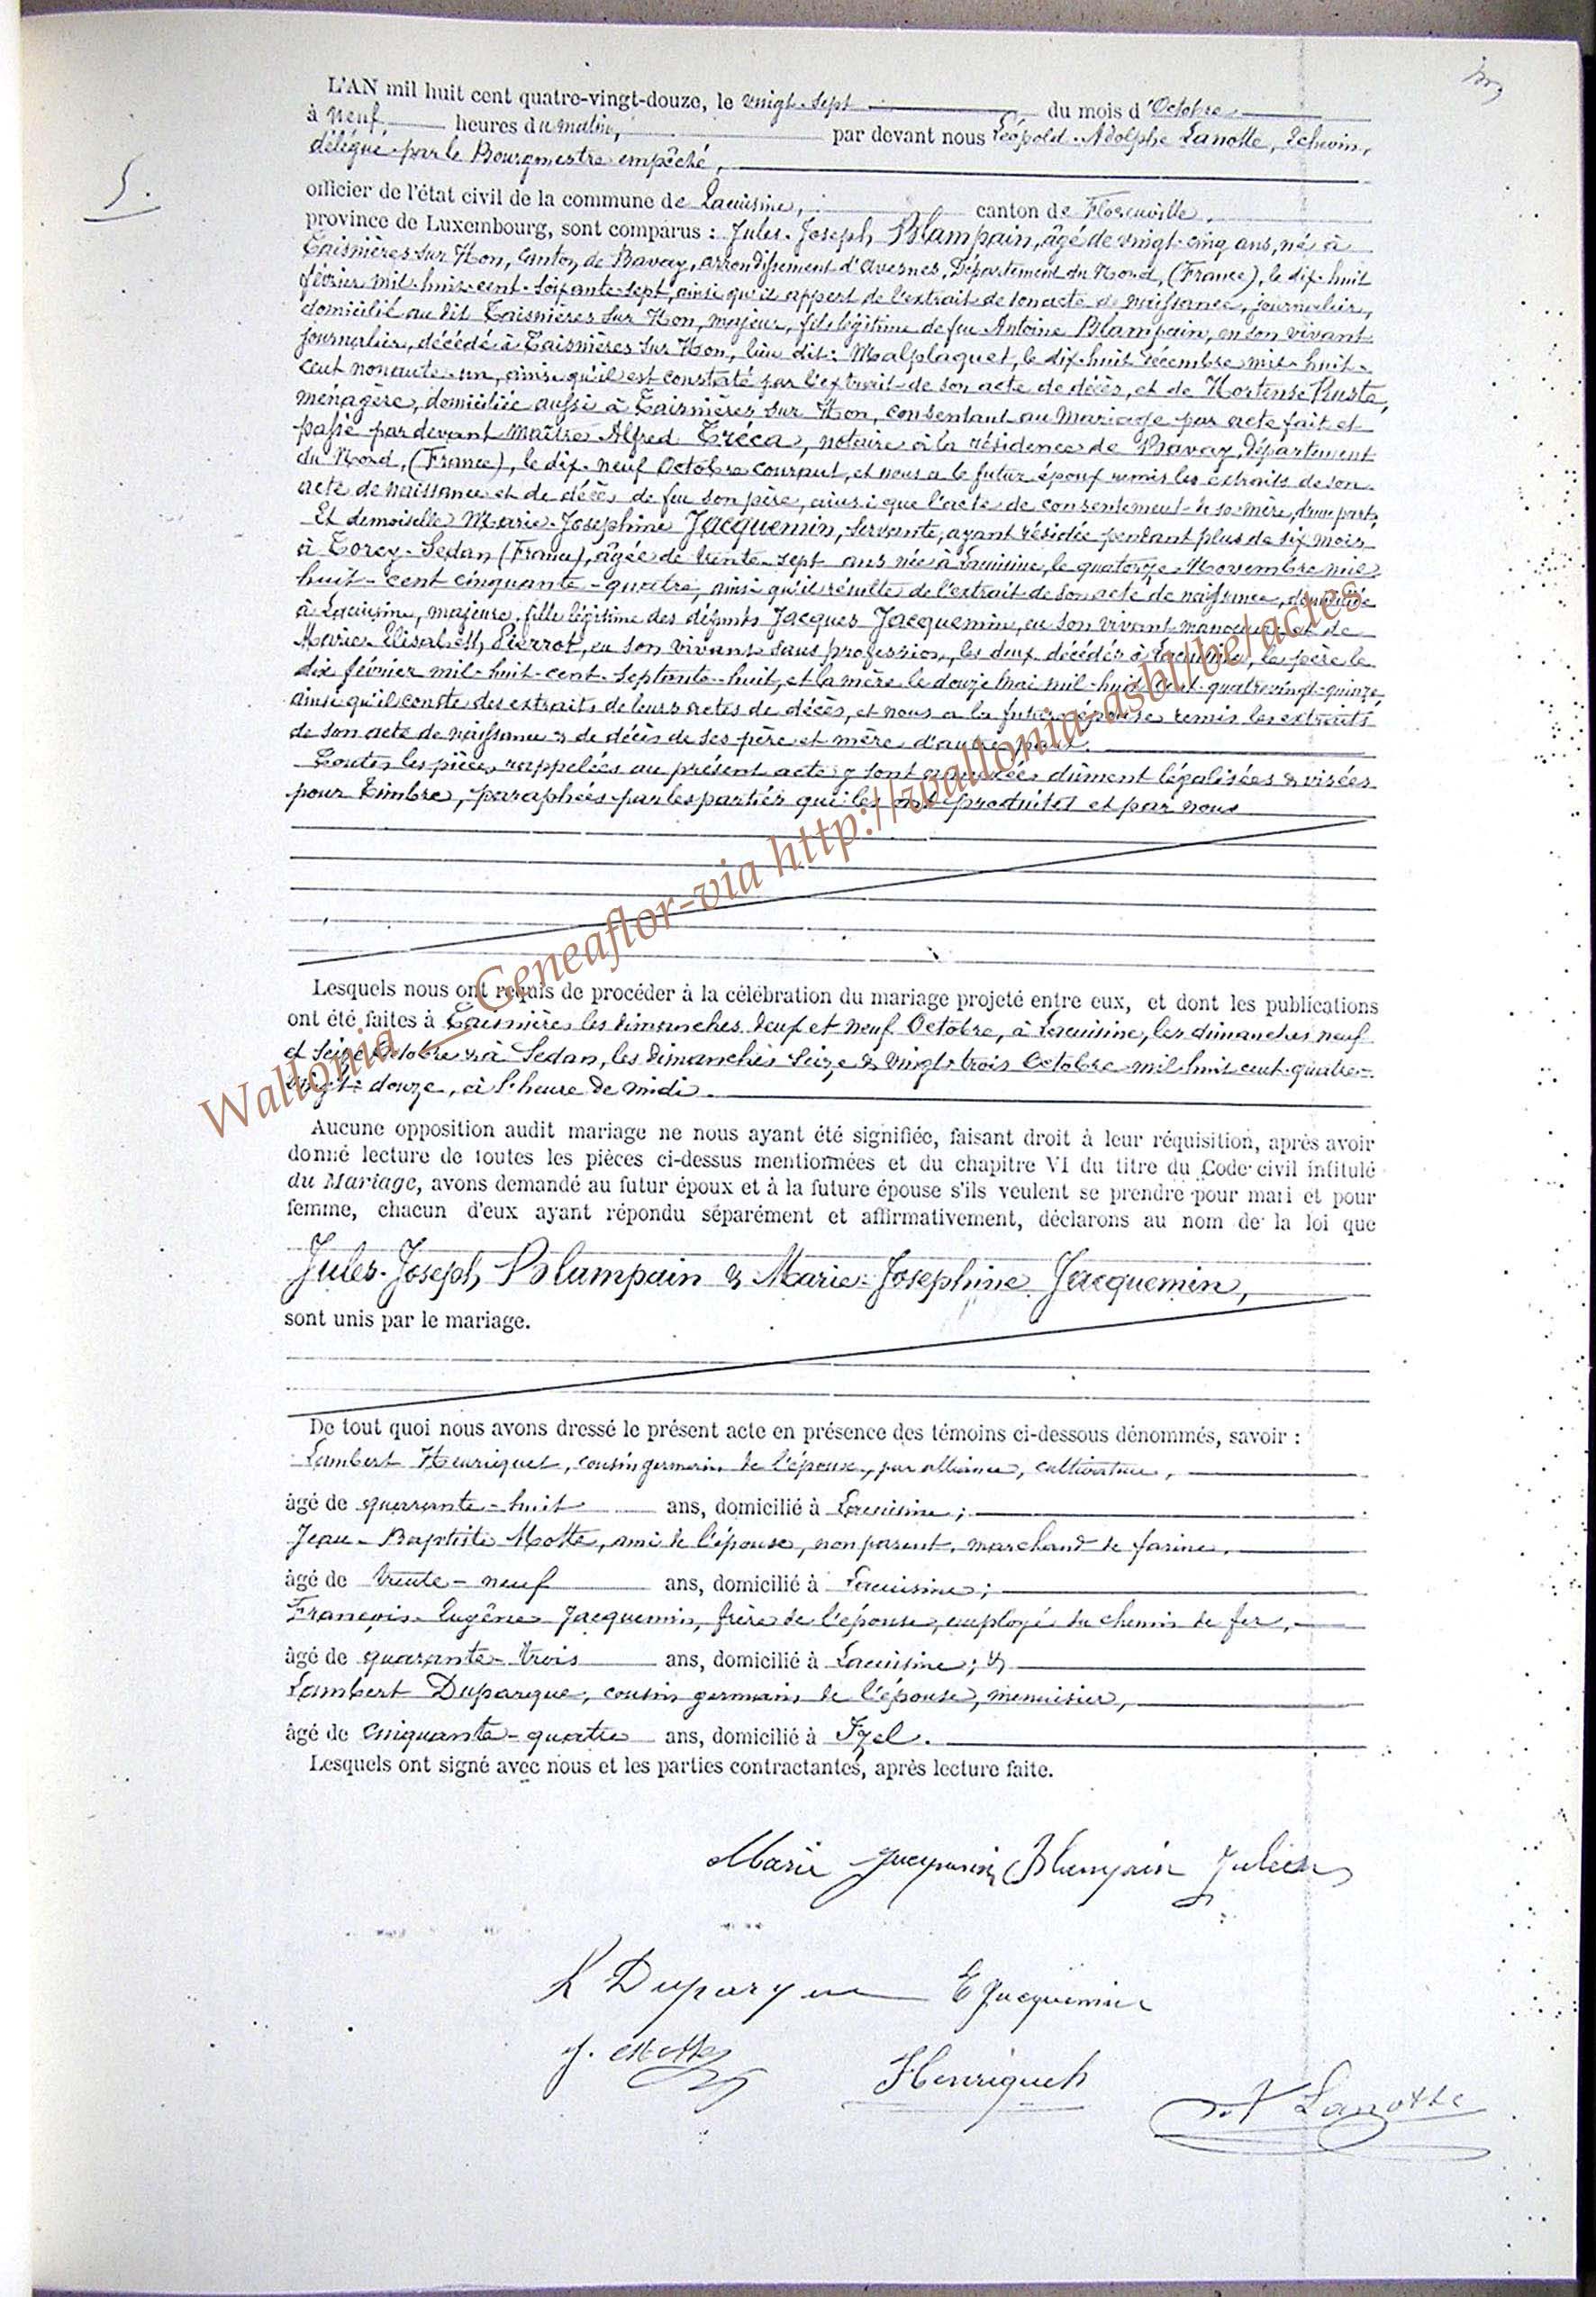 L'AN mil huit cent quatre-vingt-douze, le vingt-sept du mois d'Octobre
à neuf heures du matin, par devant nous Léopold-Adolphe Lanotte, Echevin,
délégué par le Bourgmestre empêché,
5.
officier de l'état civil de la commune de Lacuisine, canton de Florenville,
province de Luxembourg, sont comparus : Jules-Joseph Blampain, âgé de vingt-cinq ans, né à
Taisnières-sur-Hon, Canton de Bavay, arrondissement d'Avesnes, Département du Nord, (France), le dix-huit
février mil-huit-cent-soixante-sept, ainsi qu'il appert de l'extrait de son acte de naissance, journalier,
domicilié au dit Taisnières sur Hon, majeur, fils légitime de feu Antoine Blampain, en son vivant
journalier, décédé à Taisnières sur Hon, lieu dit: Malplaquet, le dix-huit Décembre mil-huit-
cent nonante-un, ainsi qu'il est constaté par l'extrait de son acte de décès, et de Hortense Ruste,
ménagère, domiciliée aussi à Taisnières sur Hon, consentant au mariage par acte fait et
passé par devant Maître Alfred Tréca, notaire à la résidence de Bavay, Département
du Nord, (France), le dix-neuf Octobre courant, et nous a le futur époux remis les extraits de son
acte de naissance et de décès de feu son père, ainsi que l'acte de consentement de sa mère, d'une part,
Et demoiselle Marie-Josephine Jacquemin, servante, ayant résidée pendant plus de six mois
à Torcy-Sedan (France), âgée de trente-sept ans née à Lacuisine, le quatorze Novembre mil
huit-cent cinquante-quatre, ainsi qu'il résulte de l'extrait de son acte de naissance, domiciliée
à Lacuisine, majeure, fille légitime des défunts Jacques Jacquemin, en son vivant manoeuvre et de
Marie-Elisabeth Pierrot, en son vivant sans profession, les deux décédés à Lacuisine, le père le
dix février mil-huit-cent-septante-huit, et la mère le douze Mai mil-huit cent-quatre vingt-quinze
ainsi qu'il conste des extraits de leurs actes de décès, et nous a la future épouse remis les extraits
de son acte de naissance & de décès de ses père et mère d'autre part.
Toutes les pièces rappelées au présent acte y sont annexées dûment légalisées & visées
pour Timbre, paraphées par les parties qui les ont produites et par nous
Lesquels nous ont requis de procéder à la célébration du mariage projeté entre eux, et dont les publications
ont été faites à Taisnières les dimanches deux et neuf Octobre, à Lacuisine, les dimanches neuf
et seize Octobre & à Sedan, les dimanches seize & vingt-trois Octobre mil huit cent quatre-
vingt-douze, à l'heure de midi.
Aucune opposition audit mariage ne nous ayant été signifiée, faisant droit à leur réquisition, après avoir
donné lecture de toutes les pièces ci-dessus mentionnées et du chapitre VI du titre du Code civil intitulé
du Mariage, avons demandé au futur époux et à la future épouse s'ils veulent se prendre pour mari et pour
femme, chacun d'eux ayant répondu séparément et affirmativement, déclarons au nom de la loi que
Jules-Joseph Blampain & Marie-Josephine Jacquemin,
sont unis par le mariage.
De tout quoi nous avons dressé le présent acte en présence des témoins ci-dessous dénommés, savoir :
Lambert Henriquet, cousin germain de l'épouse, par alliance, cultivateur,
âgé de quarante-huit ans, domicilié à Lacuisine;
Jean-Baptiste Motte, ami de l'épouse, non parent, marchand de farine,
âgé de trente-neuf ans, domicilié à Lacuisine;
François-Eugène Jacquemin, frère de l'épouse, employé du chemin de fer,
âgé de quarante-trois ans, domicilié à Lacuisine; &
Lambert Duparque, cousin germain de l'épouse, menuisier,
âgé de cinquante-quatre ans, domicilié à Izel.
Lesquels ont signé avec nous et les parties contractantes, après lecture faite.
Marie Jacquemin Blampain Jules
L Duparque E Jacquemin
J. Motte Henriquet Lanotte
Wallonia _ Geneaflor-via http://wallonia-asbl/be/actes